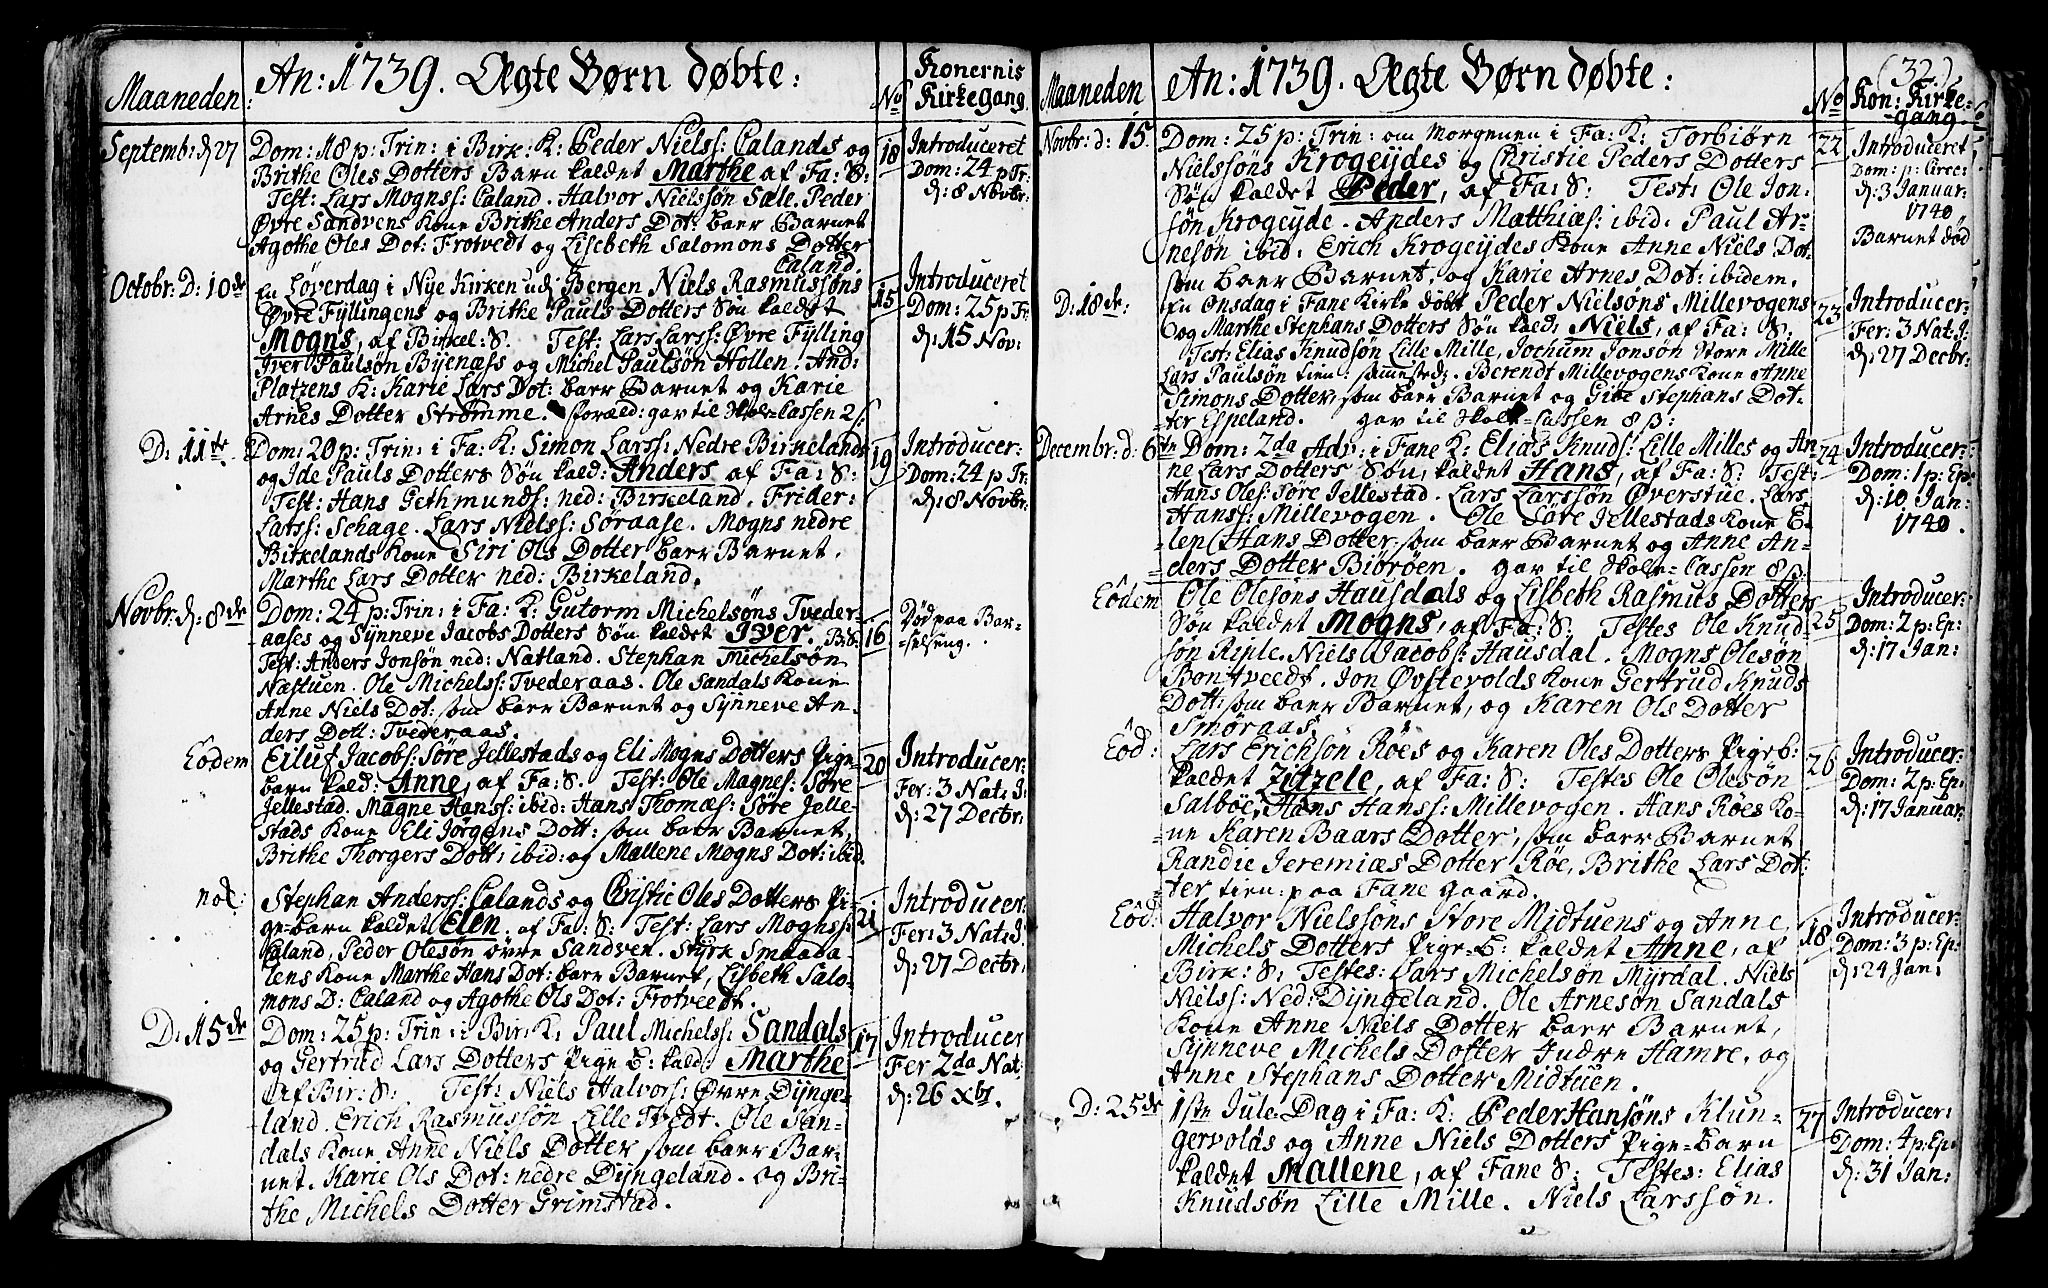 Maaneden
An: 1739. Ægte Børn døbte:
No
Konernis
Kirkegang.
Septemb: d 27
Dom: 18 p: Trin: i Birk: K: Peder Nielss: Calands og
Brithe Oles Dotters Barn kaldet Marthe af Fa: S:
Test: Lars Mognss: Caland. Halvor Nielssøn Sæle. Peder
Øvre Sandvens Kone Brithe Anders Dot: baer Barnet
Agothe Oles Dot: Frotvedt og Lisebeth Salomons Dotter
Caland.
18
Introduceret
Dom: 24 p Tr:
d: 8 Novbr:
Octobr: D: 10de
En Løverdag i Nye Kirken ud Bergen Niels Rasmussøns
Øvre Fyllingens og Brithe Pauls Dotters Søn kaldet
Mogns, af Birkel: S. Test: Lars Larss: Øvre Fylling
Iver Paulsøn Bijenæss og Michel Paulsøn Hollen. And:
Platzens K: Karie Lars Dot: baer Barnet og Karie
Arnes Dotter Strømme. foræld: gav til Skol-Cassen 2 ß
15
Introduceret
Dom: 25 p Tr:
d: 15 Nov:
D: 11te
Dom: 20 p: Trin: i Fa: K: Simon Larss: Nedre Birkelands
og Ide Pauls Dotters Søn kald: Anders af Fa: S:
Test: Hans Gethmunds: ned: Birkeland. Frider:
Larss: Schage. Lars Nielss: Søraase. Mogns nedre
Birkelands Kone Siri Ols Dotter baer Barnet.
Marthe Lars Dotter ned: Birkeland.
19
Introducer:
Dom: 24 p Tr:
d: 8 Novbr:
Novbr: d: 8de
Dom: 24 p: Trin: i Fa: K: Gutorm Michelsøns Tveder-
aases og Synneve Jacobs Dotters Søn kaldet Iver. B: S:
Test: Anders Jonsøn ned: Natland. Stephan Michelsøn
Nastuen. Ole Michelss: Tvederaas. Ole Sandals Kone
Anne Niels Dot: som baer Barnet og Synneve An-
ders Dott: Tvederaas.
16
Død paa Bar-
-selseng.
Eodem
Eiluf Jacobs: Søre Jellestads og Eli Mogns Dotters Pige-
barn kald: Anne, af Fa: S. Test: Ole Magness: Søre
Jellestad. Magne Hanss: ibid: Hans Thomæs: Søre Jelle-
stads Kone Eli Jørgens Dott: som baer Barnet,
Brithe Thorgers Dott: ibid: og Mallene Mogns Dot: ibid.
20
Introducer:
Fer: 3 Nat: J:
d: 27 Decbr:
Stephan Anderss: Calands og Christie Oles Dotters Pi-
ge-barn kaldet Elen. af Fa: S: Test: Lars Mognss:
Caland, Peder Olesøn övre Sandven. Styrk Smaada-
lens Kone Marthe Hans Dot: baer Barnet, Lisbeth Salo-
mons D: Caland og Agothe Ols Dot: Frotveedt.
21
Introducer:
Fer: 3 Nat: J:
d: 27 Decbr:
D: 15de
Dom: 25 p: Trin: i Bir: K: Paul Michelss: Sandals
og Gertrud Lars Dotters Pige B: kald: Marthe
af Bir: S: Test: Niels Halvors: Øvre Dijnge-
land. Erich Rasmussøn Lille Tvedt. Ole San-
dals Kone Anne Niels Dotter som baer Bar-
net. Karie Ols Dot: nedre Dijngeland. og Bri-
the Michels Dotter Grimstad.
17
Introducer
Fer 2da Nat:
d: 26 Xbr.
Maaneden
An: 1739. Ægte Børn døbte:
No
(32.)
Kon: Kirke-
-gang.
Novbr: d: 15.
Dom: 25 p: Trin: om Morgenen i Fa: K: Torbiørn
Nielssøns Krogeijdes og Christie Peders Dotters
Søn kaldet Peder, af Fa: S: Test: Ole Jon-
søn Krogeijde. Anders Matthiæs: ibid: Paul Ar-
nesøn ibid: Erich Krogeijdes Kone Anne Niels Dot:
som baer Barnet, og Karie Arnes Dot: ibidem.
22
Introduceret
Dom: p: Circ:
d: 3 Januar:
1740
Barnet død
D: 18de:
En Onsdag i Fane Kirke döbt Peder Nielsøns Millevogens
og Marthe Stephans Dotters Søn kald: Niels, af Fa: S:
Test: Elias Knudsøn Lille Mille, Jochum Jonsøn Store Mille
Lars Paulsøn tien: sammestedz. Berendt Millevogens Kone Anne
Simons Dotter, som baer Barnet og Giöe Stephans Dot-
ter Espeland. gav til Skole-Cassen 8 ß:
23
Introducer:
Fer: 3 Nat: J:
d: 27 Decbr:
Decembr: d: 6te
Dom: 2da Adv: i Fane K: Elias Knuds: Lille Milles og An-
ne Lars Dotters Søn, kaldet Hans, af Fa: S: Test:
Hans Oles: Søre Jellestad. Lars Larssøn Øverstue. Lars
Hanss: Millevogen. Ole Søre Jellestads Kone E-
-len Hans Dotter som baer Barnet og Anne An-
-ders Dotter Biörøen. gav til Skole-Cassen 8 ß.
24
Introducer:
Dom: 1 p: Ep:
d: 10 Jan:
1740.
Eodem
Ole Olesøns Hausdals og Lisbeth Rasmus Dotters
Søn kaldet Mogns, af Fa: S: Testes Ole Knud-
søn Riple. Niels Jacobs: Hausdal. Mogns Olesøn
Bontveedt. Jon Øvstevolds Kone Gertrud Knuds
Dott: som baer Barnet, og Karen Ols Dotter
Smøraas.
25
Introducer:
Dom: 2 p: Ep:
d: 17 Jan:
Eöd:
Lars Erichsøn Röes og Karen Oles Dotters Pige b:
kaldet Zitzele, af Fa: S: Testes Ole Olesøn
Salböe, Hans Hanss: Millevogen. Hans Röes Ko-
ne Karen Baars Dotter, som baer Barnet
Randie Jeremiæs Dotter Röe, Brithe Lars Dot-
ter tien: paa Fane gaard.
26
Introducer:
Dom: 2 p: Ep:
d: 17 Januar:
Eöd:
Halvor Nielssøns Store Midtuens og Anne
Michels Dotters Pige-B: kaldet Anne, af
Birk: S: Testes: Lars Michelsøn Myrdal. Niels
Nielss: Ned: Dijngeland. Ole Arnesøn Sandals
Kone Anne Niels Dotter baer Barnet,
Synneve Michels Dotter Indre Hamre, og
Anne Stephans Dotter Midtuen.
18
Introducer-
Dom: 3 p: Ep:
d: 24 Jan:
D: 25de
1ste Jule-Dag i Fa: K: Peder Hansøns Klun-
gervolds og Anne Niels Dotters Pige-barn
kaldet Mallene, af Fane S: Testes: Elias
Knudsøn Lille Mille. Niels Larssøn.
27
Introducer:
Dom: 4 p: Ep:
d: 31 Jan: